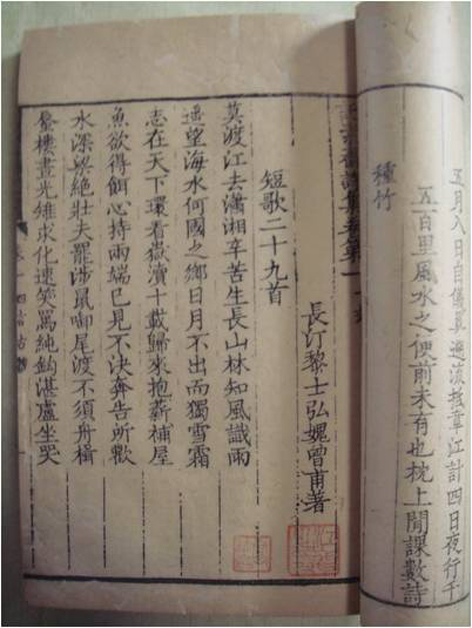 五月八日自儀真遡流抵章江計四日夜行千
五百里風水之便前未有也枕上閒課數詩
種竹
詩集卷第一
長汀黎士弘媿曾甫著
短歌二十九首
莫渡江去瀟湘辛苦生長山林知風識雨
遥望海水何國之鄉日月不出而獨雪霜
志在天下環看嶽瀆十載歸來抱薪補屋
魚欲得餌心持兩端已見不決奔告所歡
水深梁絶壯夫罷涉鼠啣尾渡不須舟楫
蜃樓晝光雉求化速笑罵純鈎湛盧坐哭